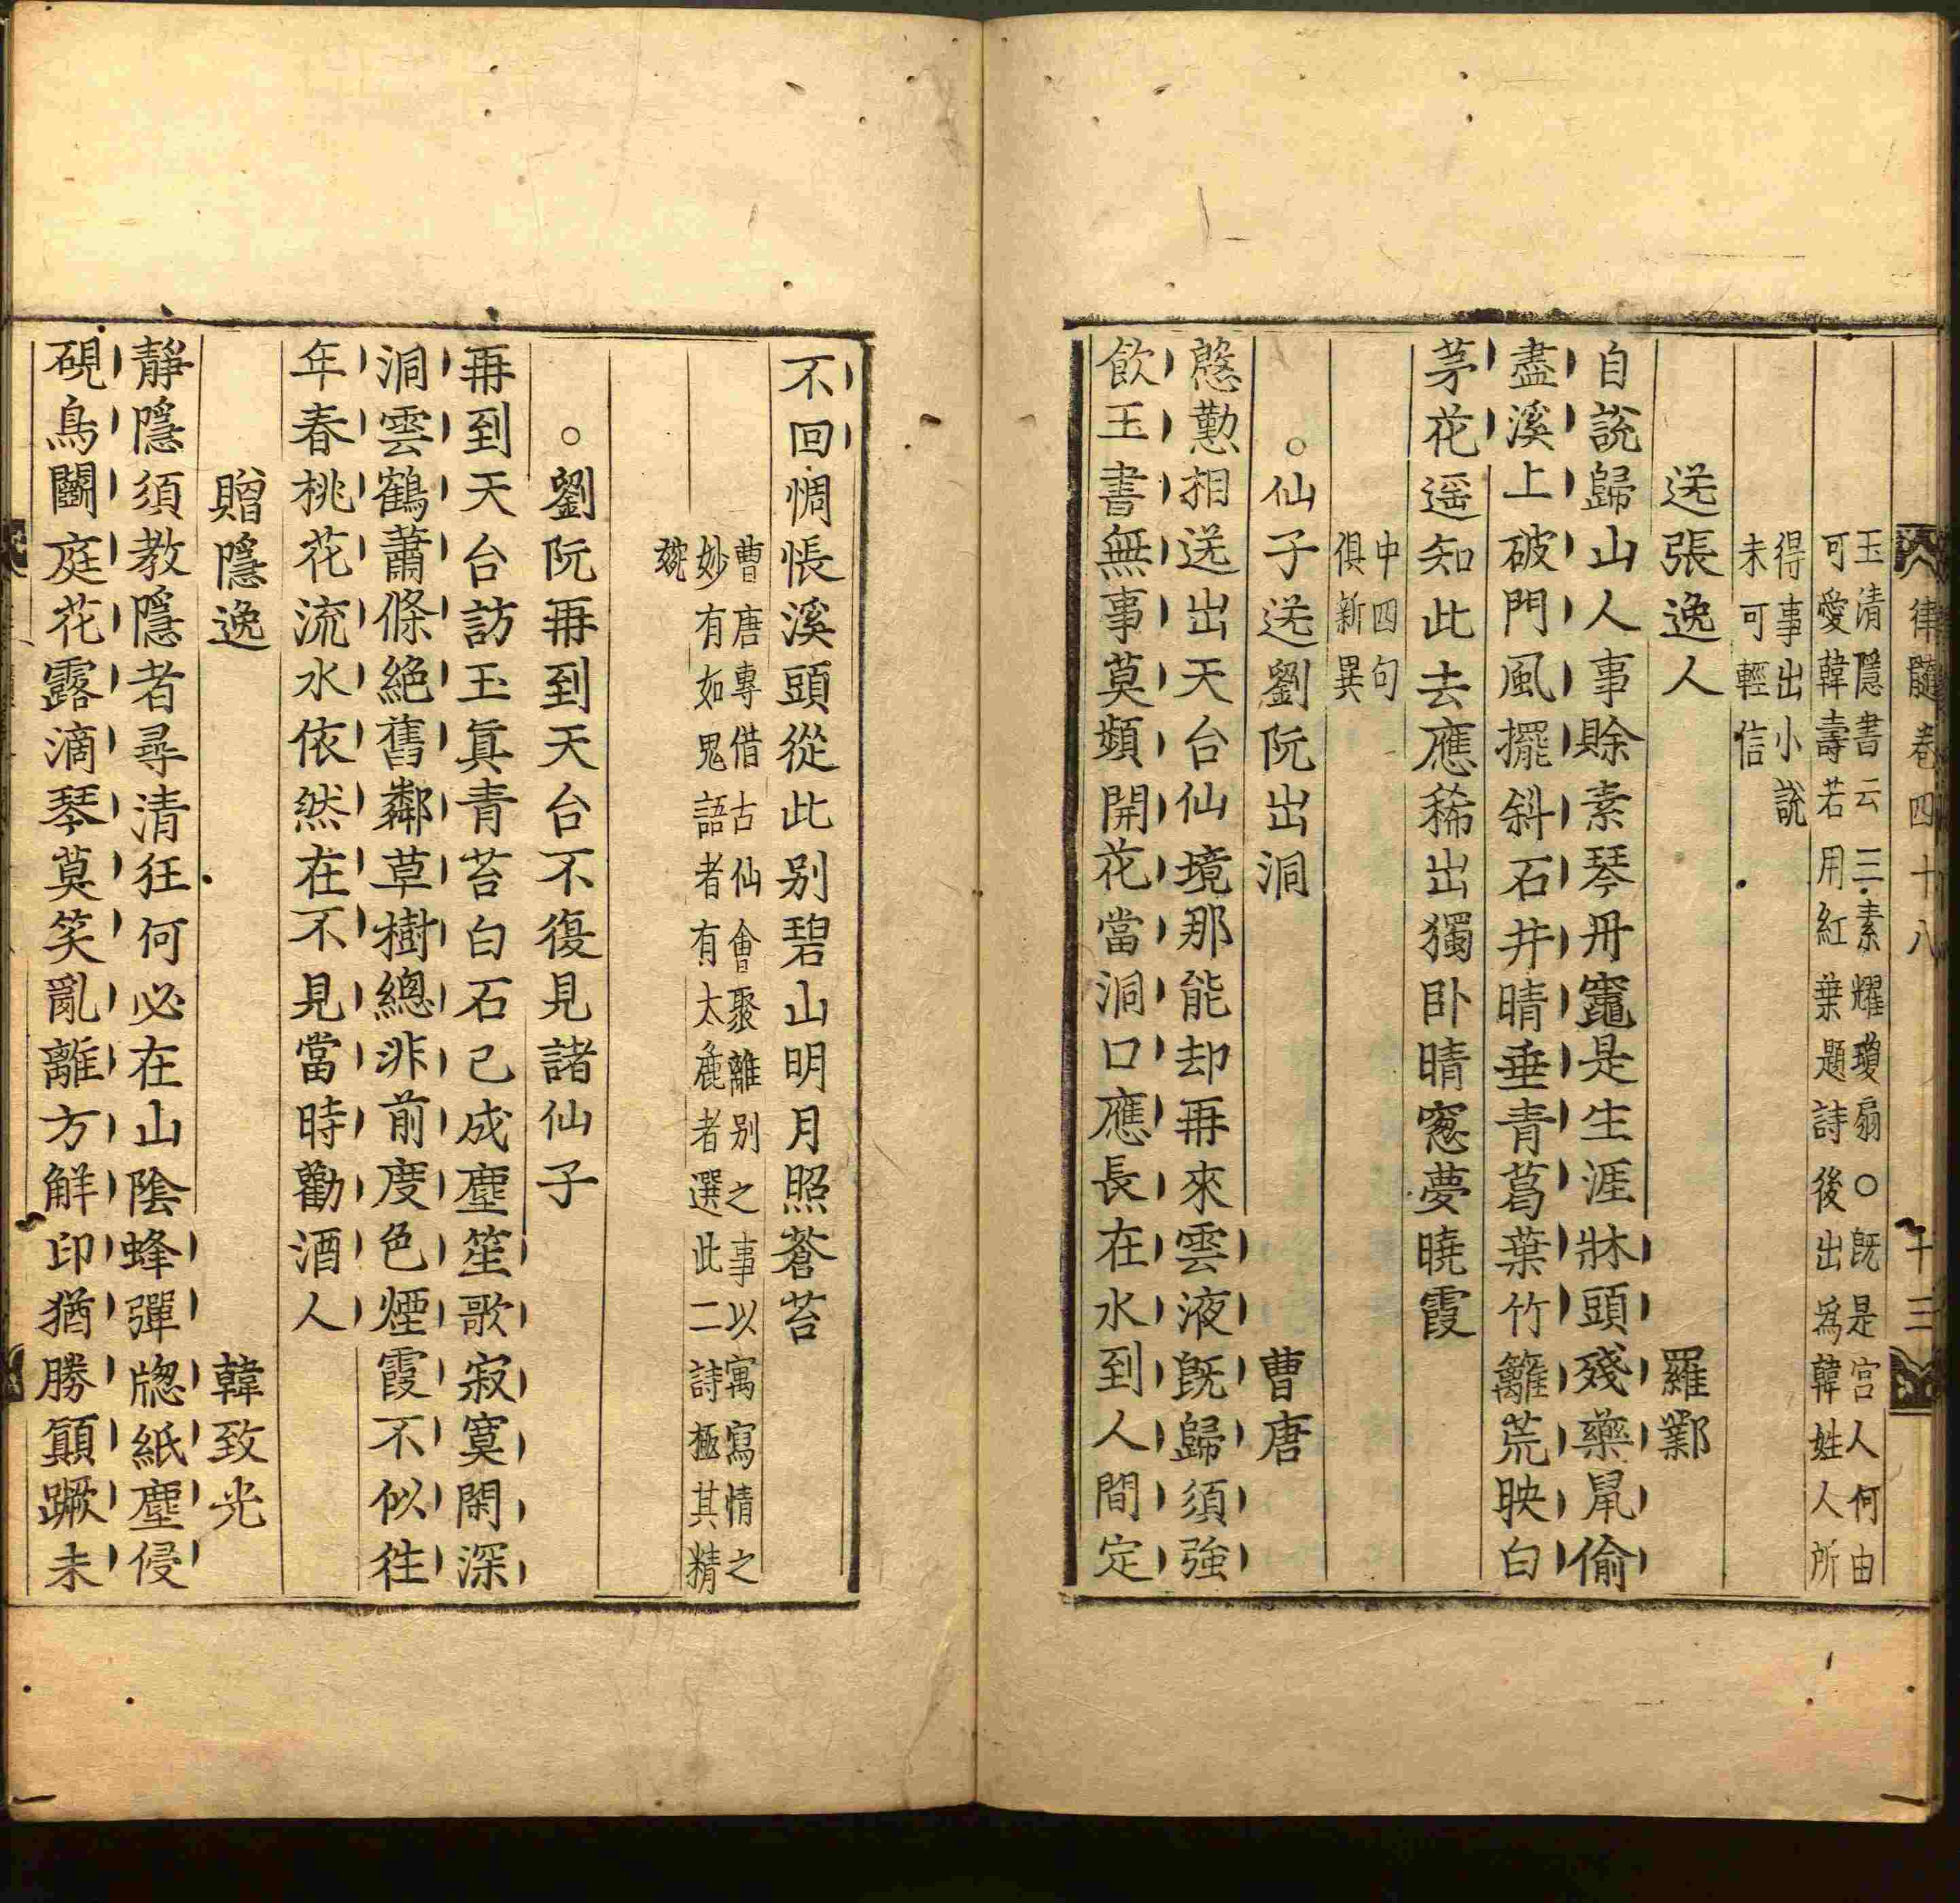 律髓卷四十八 十三
玉清隱書云三素耀瓊扇○既是宮人何由
可愛韓壽若用紅葉題詩後出爲韓姓人所
得事出小說
未可輕信
送張逸人 羅鄴
自說歸山人事賒素琴丹竈是生涯牀頭殘藥鼠偷
盡溪上破門風擺斜石井晴垂青葛葉竹籬荒映白
茅花遥知此去應稀出獨卧晴窓夢曉霞
中四句
俱新異
○仙子送劉阮出洞 曹唐
慇懃相送出天台仙境那能却再來雲液既歸須強
飲玉書無事莫頻開花當洞口應長在水到人間定
不回惆悵溪頭從此别碧山明月照蒼苔
曹唐專借古仙會聚離别之事以寓寫情之
妙有如鬼語者有太麁者選此二詩極其精
婉
○劉阮再到天台不復見諸仙子
再到天台訪玉眞青苔白石已成塵笙歌寂寞閑深
洞雲鶴蕭條絶舊鄰草樹總非前度色煙霞不似徃
年春桃花流水依然在不見當時勸酒人
贈隱逸 韓致光
靜隱須教隱者尋清狂何必在山陰蜂彈牕紙塵侵
硯鳥鬭庭花露滴琴莫笑亂離方解印猶勝顚蹶未